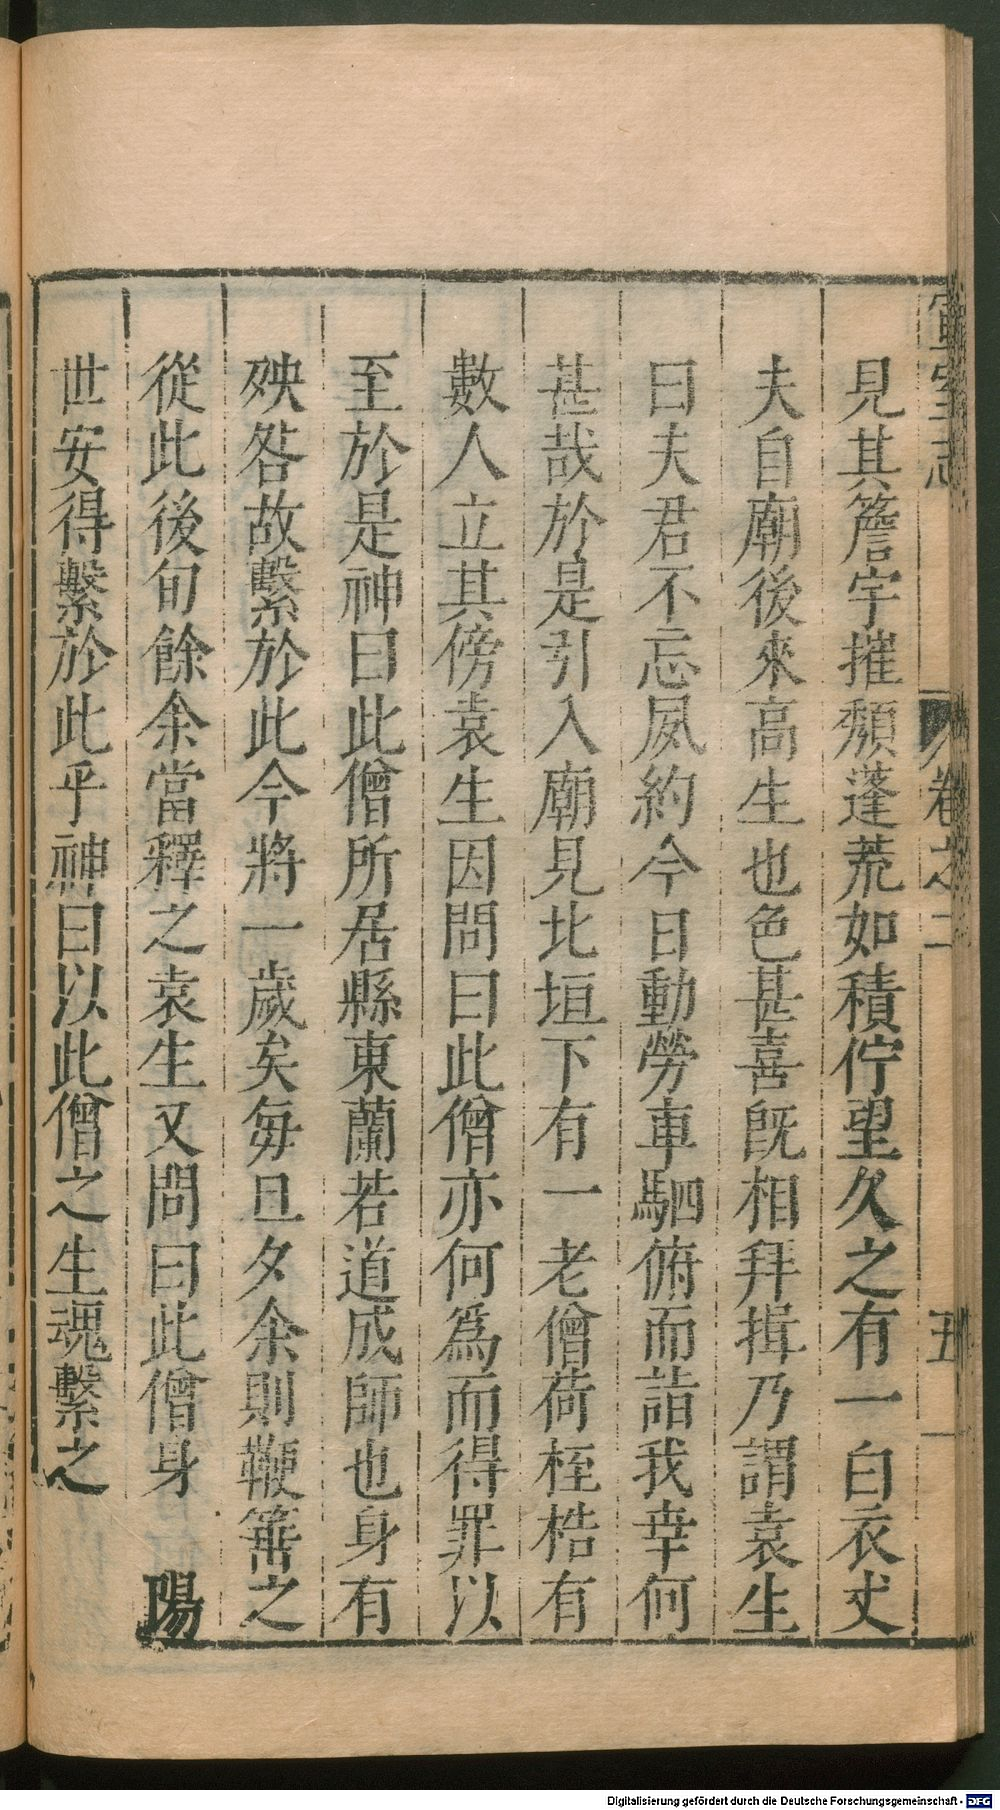 宣室志 卷之二 五
見其簷宇摧頽蓬荒如積佇望久之有一白衣丈
夫自廟後來高生也色甚喜旣相拜揖乃謂袁生
曰夫君不忘夙約今日動勞車駟俯而詣我幸何
甚哉於是引入廟見北垣下有一老僧荷桎梏有
數人立其傍袁生因問曰此僧亦何爲而得罪以
至於是神曰此僧所居縣東蘭若道成師也身有
殃咎故繫於此今將一歲矣每旦夕余則鞭箠之
從此後旬餘余當釋之袁生又問曰此僧身陽
世安得繫於此乎神曰以此僧之生魂繫之
Digitalisierung gefördert durch die Deutsche Forschungsgemeinschaft - DFG